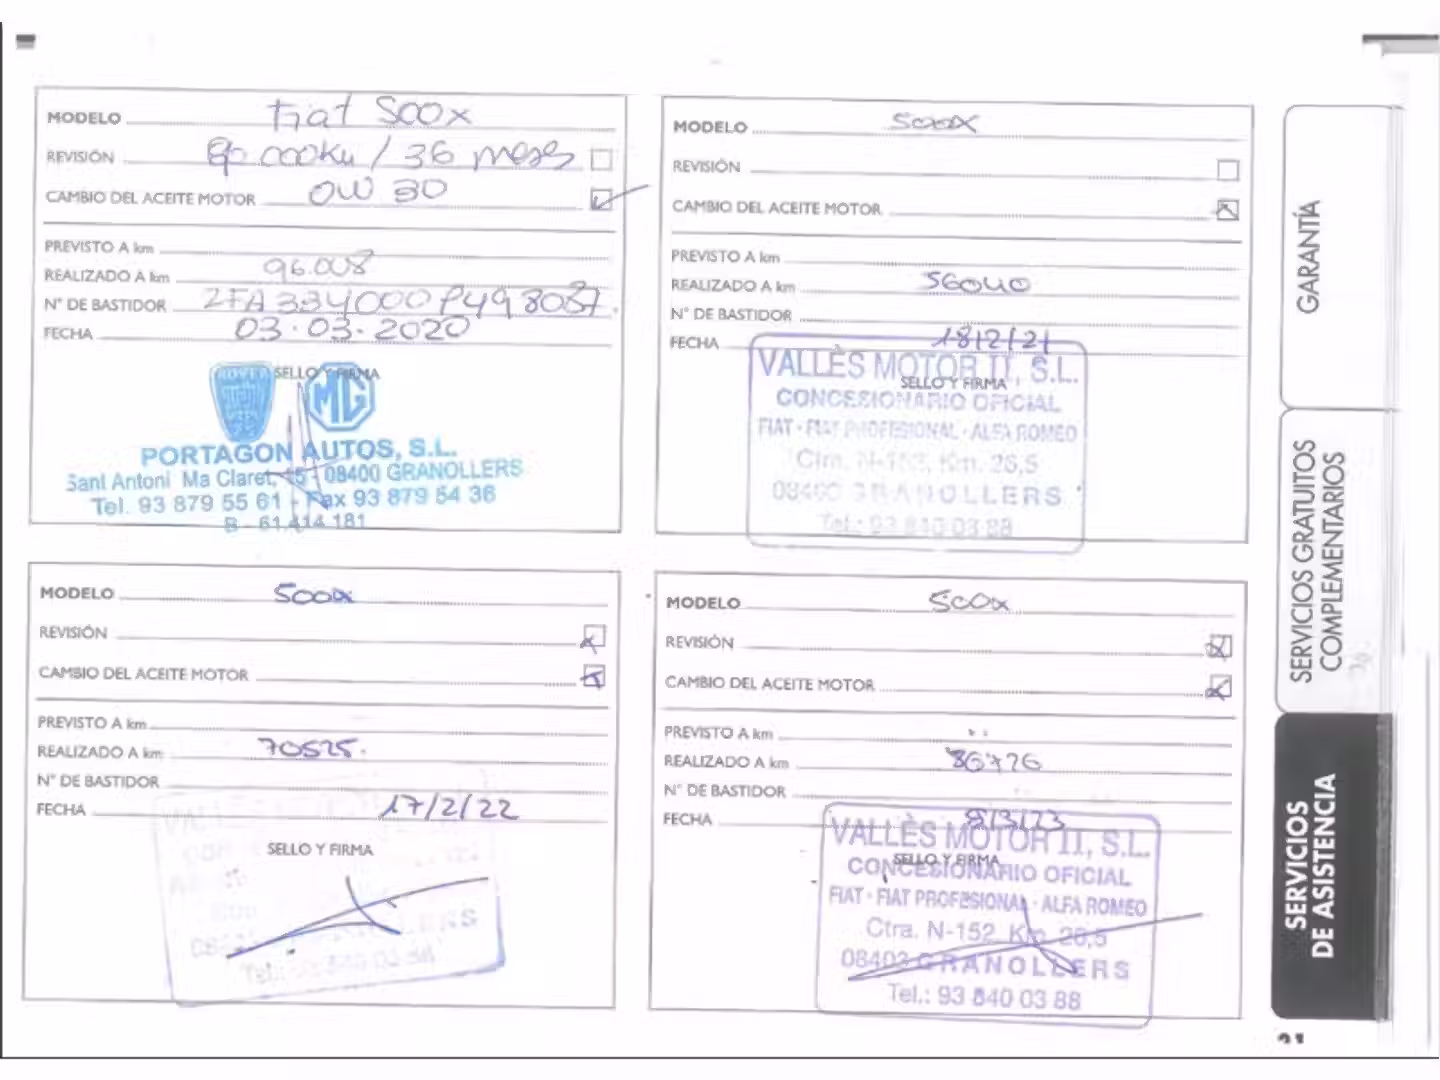 MODELO Fiat 500x
REVISIÓN 90.000Km / 36 meses
CAMBIO DEL ACEITE MOTOR 0W 30
PREVISTO A km
REALIZADO A km 96.008
N° DE BASTIDOR ZFA334000P498087.
FECHA 03.03.2020
SELLO Y FIRMA
ROVER MG
PORTAGON AUTOS, S.L.
Sant Antoni Ma Claret, 15 - 08400 GRANOLLERS
Tel. 93 879 55 61 - Fax 93 879 54 36
B - 61.414.181
MODELO 500X
REVISIÓN
CAMBIO DEL ACEITE MOTOR
PREVISTO A km
REALIZADO A km 56040
N° DE BASTIDOR
FECHA 18/2/21
VALLÈS MOTOR II, S.L.
SELLO Y FIRMA
CONCESIONARIO OFICIAL
FIAT - FIAT PROFESIONAL - ALFA ROMEO
Ctra. N-152, Km. 26,5
08403 GRANOLLERS
Tel.: 93 840 03 88
MODELO 500x
REVISIÓN
CAMBIO DEL ACEITE MOTOR
PREVISTO A km
REALIZADO A km 70525.
N° DE BASTIDOR
FECHA 17/2/22
SELLO Y FIRMA
MODELO 500x
REVISIÓN
CAMBIO DEL ACEITE MOTOR
PREVISTO A km
REALIZADO A km 86726
N° DE BASTIDOR
FECHA 8/3/23
VALLÈS MOTOR II, S.L.
SELLO Y FIRMA
CONCESIONARIO OFICIAL
FIAT - FIAT PROFESIONAL - ALFA ROMEO
Ctra. N-152, Km. 26,5
08403 GRANOLLERS
Tel.: 93 840 03 88
GARANTÍA
SERVICIOS GRATUITOS
COMPLEMENTARIOS
SERVICIOS
DE ASISTENCIA